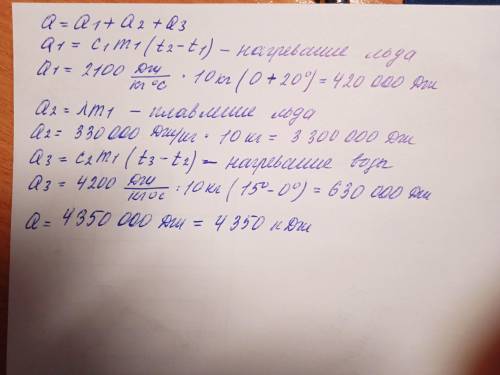 Q = Q1 + Q2 + Q3
Q1 = c1m1(t2-t1) - нагревание льда
Q1 = 2100 Дж/кг°С · 10кг(0+20°) = 420 000 Дж
Q2 = λm1 - плавление льда
Q2 = 330 000 Дж/кг · 10кг = 3 300 000 Дж
Q3 = c2m1(t3-t2) - нагревание воды
Q3 = 4200 Дж/кг°С · 10кг(15°-0°) = 630 000 Дж
Q = 4350 000 Дж = 4 350 кДж